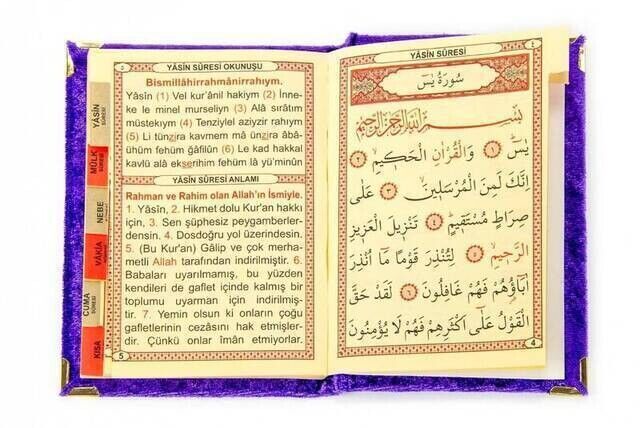 YÂSİN SÛRESİ
٤
سُورَةُ يٰسٓ
بِسْمِ اللّٰهِ الرَّحْمٰنِ الرَّحِيمِ
يٰسٓ ﴿١﴾ وَالْقُرْاٰنِ الْحَكِيمِ ﴿٢﴾
اِنَّكَ لَمِنَ الْمُرْسَلِينَ ﴿٣﴾ عَلٰى
صِرَاطٍ مُسْتَقِيمٍ ﴿٤﴾ تَنْزِيلَ الْعَزِيزِ
الرَّحِيمِ ﴿٥﴾ لِتُنْذِرَ قَوْمًا مَٓا اُنْذِرَ
اٰبَٓاؤُ۬هُمْ فَهُمْ غَافِلُونَ ﴿٦﴾ لَقَدْ حَقَّ
الْقَوْلُ عَلٰٓى اَكْثَرِهِمْ فَهُمْ لَا يُؤْمِنُونَ
4
٥
YÂSİN SÛRESİ OKUNUŞU
Bismillâhirrahmânirrahıym.
Yâsîn (1) Vel kur'ânil hakiym (2) İnne-
ke le minel murseliyn (3) Alâ sırâtım
müstekıym (4) Tenziylel aziyzir rahıym
(5) Li tünzira kavmem mâ ünzira âbâ-
ühüm fehüm gâfilûn (6) Le kad hakkal
kavlü alâ ekserihim fehüm lâ yü'minûn
YÂSİN SÛRESİ ANLAMI
Rahman ve Rahim olan Allah'ın İsmiyle.
1. Yâsîn, 2. Hikmet dolu Kur'an hakkı
için, 3. Sen şüphesiz peygamberler-
densin. 4. Dosdoğru yol üzerindesin.
5. (Bu Kur'an) Gâlip ve çok merha-
metli Allah tarafından indirilmiştir. 6.
Babaları uyarılmamış, bu yüzden
kendileri de gaflet içinde kalmış bir
toplumu uyarman için indirilmiş-
tir. 7. Yemin olsun ki onların çoğu
gafletlerinin cezasını hak etmişler-
dir. Çünkü onlar îmân etmiyorlar.
5
YÂSİN
SÛRESİ
MÜLK
SÛRESİ
NEBE
VÂKIA
CUMA
SÛRESİ
KISA